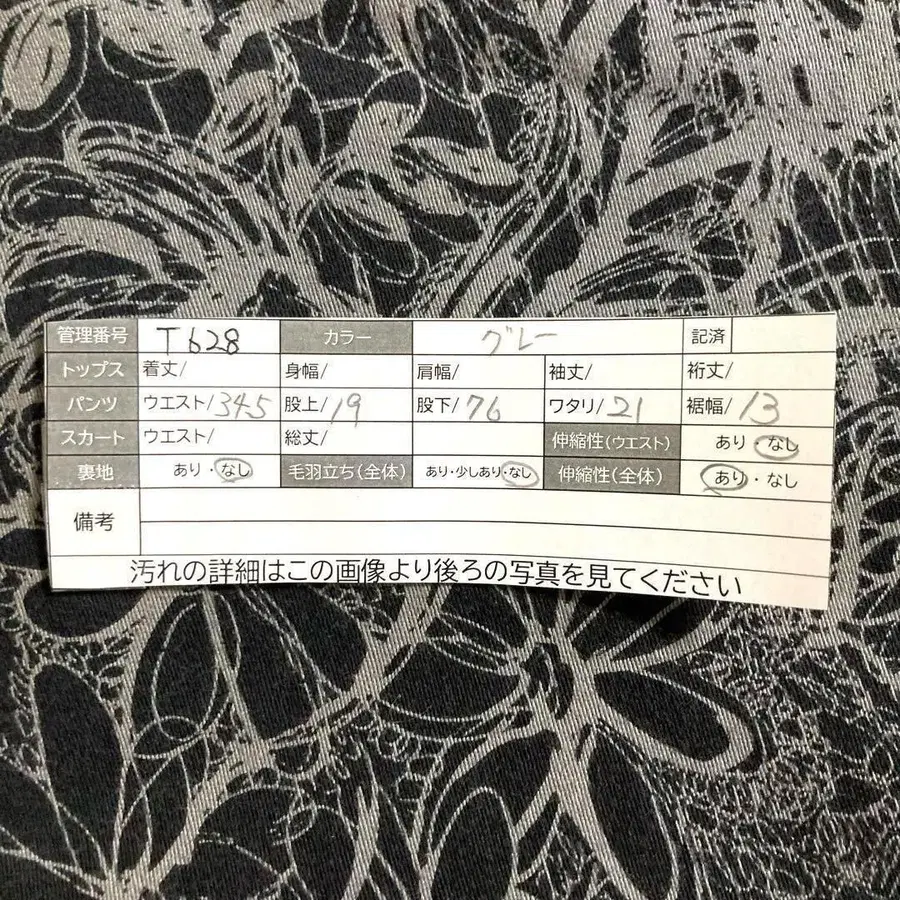 管理番号 T628 カラー グレー 記済
トップス 着丈/ 身幅/ 肩幅/ 袖丈/ 裄丈/
パンツ ウエスト/34.5 股上/19 股下/76 ワタリ/21 裾幅/13
スカート ウエスト/ 総丈/ 伸縮性(ウエスト) あり・なし
裏地 あり・なし 毛羽立ち(全体) あり・少しあり・なし 伸縮性(全体) あり・なし
備考
汚れの詳細はこの画像より後ろの写真を見てください